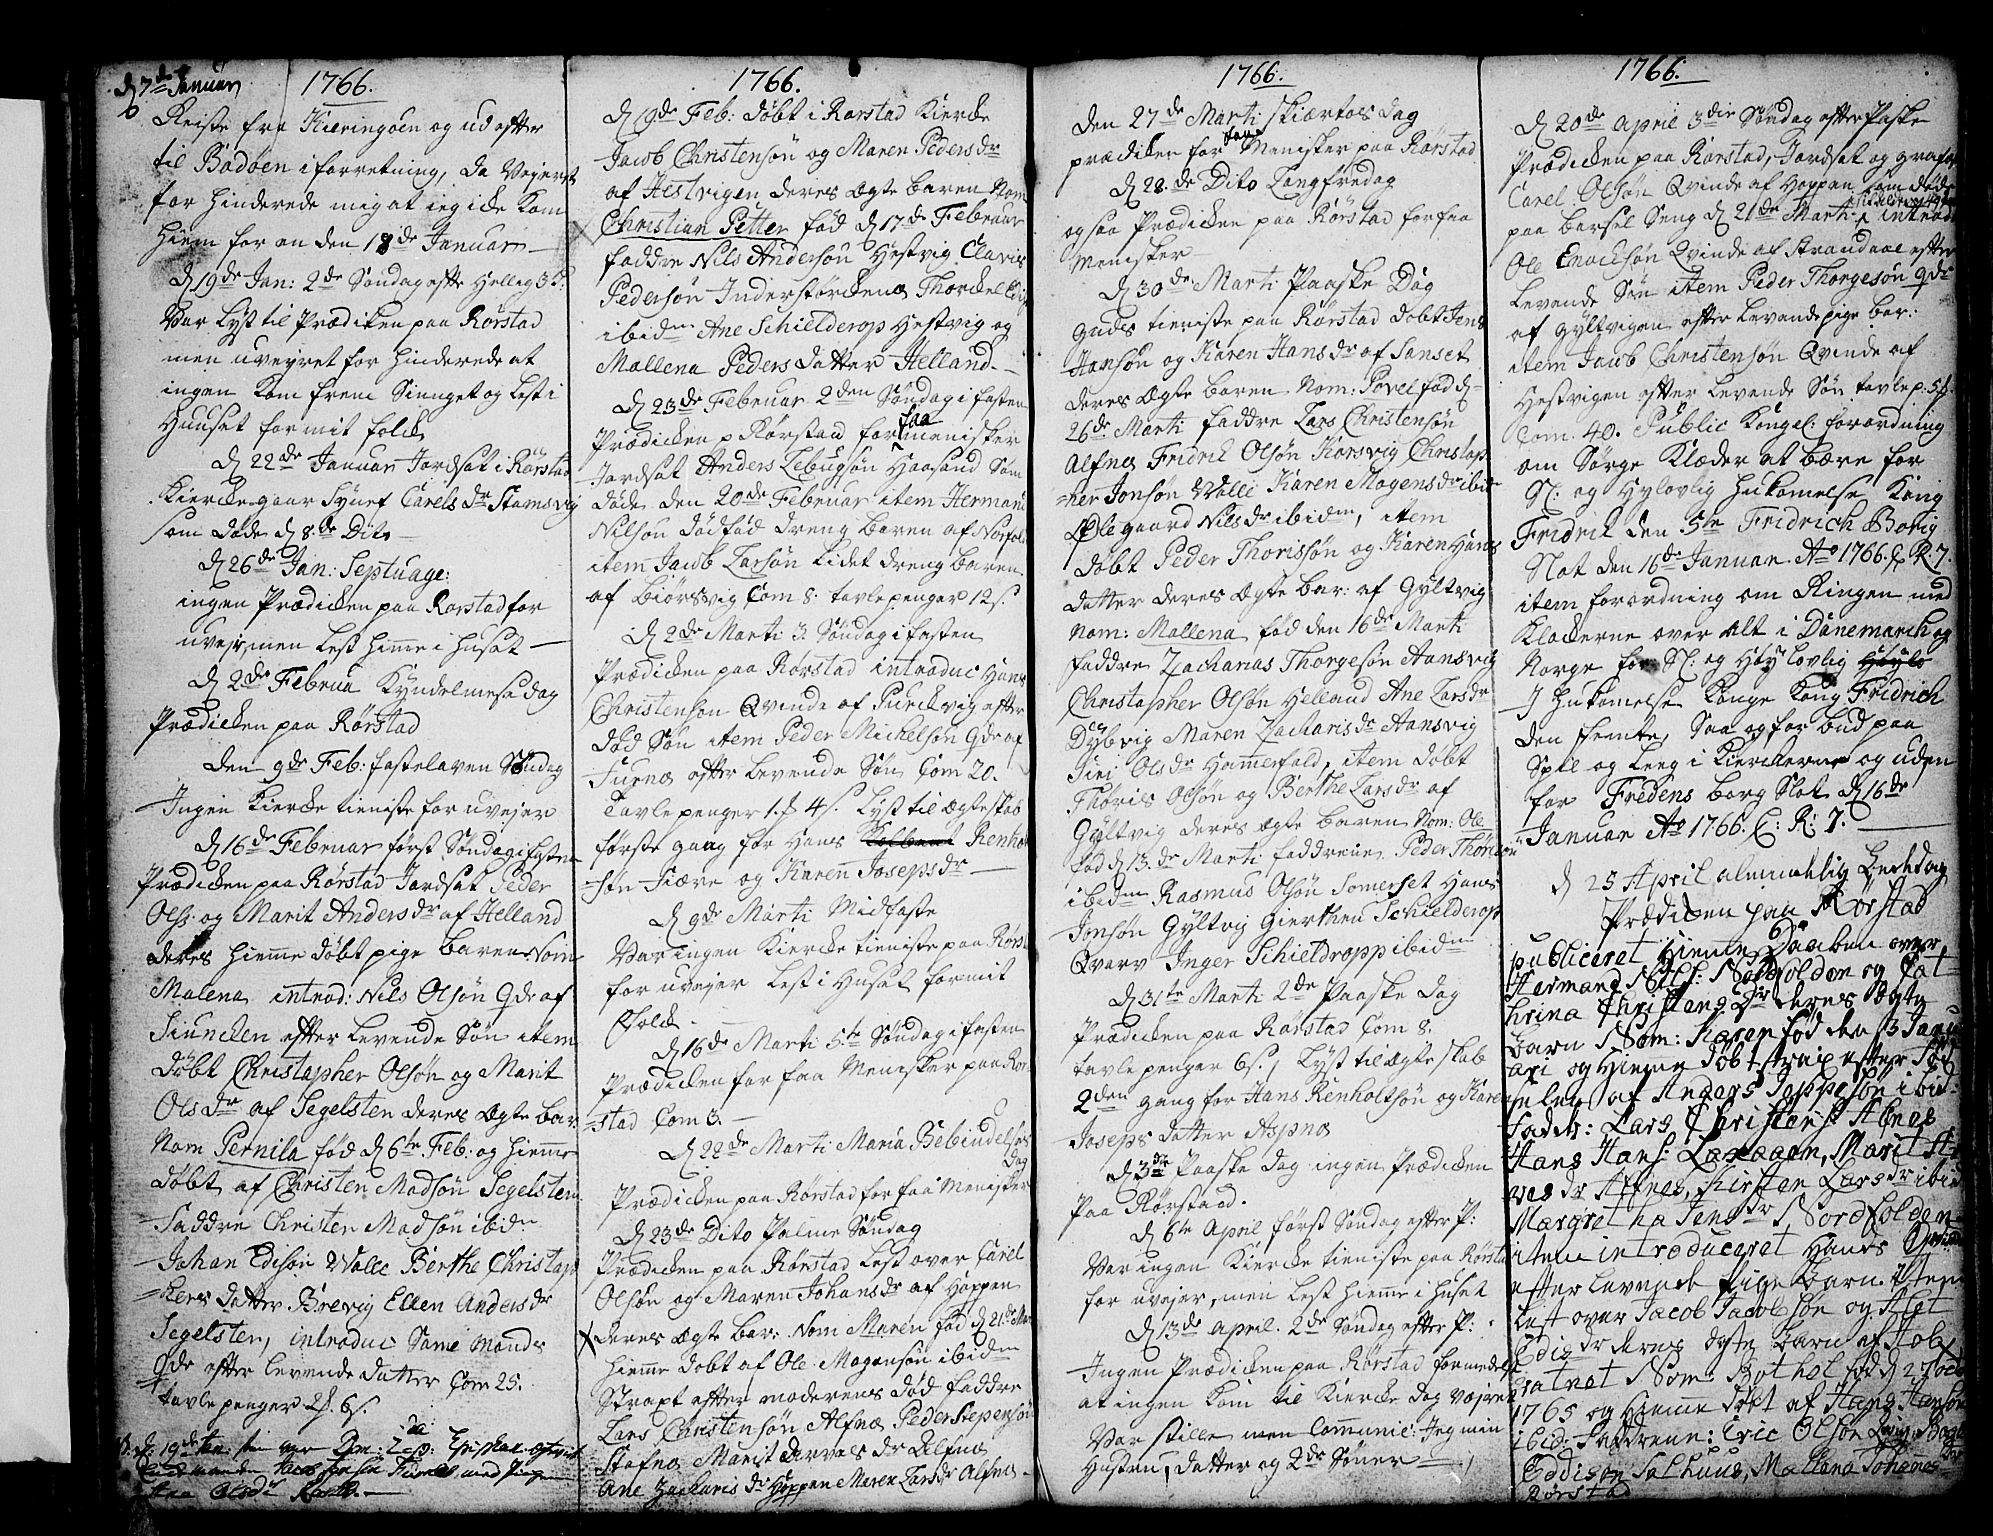 1766.
d 7de Januar
Reiste fra Kieringøen og ud efter
til Bodøen i forretning, da Vejeret
for hinderede mig at ieg icke kom
hiem for en den 18de Januar
d 19de Jan: 2de Søndag efter Hellig 3 K:
Var Lyst til Prædiken paa Rørstad
men uveyret for hinderede at
ingen kom frem Siunget og Lest i
Huuset for mit folck
d 22de Januar Jordsat i Rørstad
Kierckegaar Synef Carels dr Stamsvig
som døde d 8de Dito
d 26de Jan: Septuage:
ingen Prædicken paa Rørstad for
uvejr men Lest hieme i huset
d 2de Februa Kyndelmesse dag
Prædicken paa Rørstad
den 9de Feb: fastelaven Søndag
Ingen Kiercke tieniste for uvejer
d 16de Februar først Søndag i fasten
Prædicken paa Rørstad Jordsat Peder
Ols: og Marit Anders dr af Helland
deres hieme døbt pige baren Nom
Malena introd: Nils Olsøn Qde af
Siunden efter Levende Søn item
døbt Christapher Olsøn og Marit
Ols dr af Segelsten deres Ægte bar:
Nom Pernila fød d 6te Feb: og hieme
døbt af Christen Madsøn Segelsten
Faddre Christen Madsøn ibidn
Johan Edisøn Valle Berthe Christap
hers datter Brevig Ellen Anders dr
Segelsten, introduc Same Mands
Qde efter Levende datter Com 25.
tavle penger 2 6 s.
1766.
d 19de Feb: døbt i Rørstad Kiercke
Jacob Christensøn og Maren Peders dr
af Hestvigen deres Ægte baren Nom
Christian Petter fød d 17de Februar
faddre Nils Andersøn Hestvig Claves
Pedersøn Inderstørckenes Thorckel
ibidm Ane Schielderop Hestvig og
Mallena Peders datter Helland.
d 23de Februar 2den Søndag i fasten
Prædicken p Rørstad for faa menisker
Jordsat Anders Zebugsøn Haasand Som
døde den 20de Februar item Herman
Nilsøn dødfød dreng baren af Norfol
item Jacob Larsøn Lidet dreng baren
af Biørsvig Com 8: tavle penger 12 s.
d 2de Marti 3. Søndag i fasten
Prædicken paa Rørstad introduc Hans
Christensøn Qvinde af Purckvig efter
død Søn item Peder Michelsøn Qde af
Furnes efter Levende Søn Com 20.
Tavle penger 1 4 s. Lyst til Ægteskab
første gaag for Hans Renholt
søn Fiære og Karen Joseps dr
d 9de Marti Midfaste
Var ingen Kiercke tieniste paa Rørst
for uvejer Lest i Huset for mit
Folck
d 16de Marti 5te Søndag i fasten
Prædicken for faa Menisker paa Rør
stad Com 3.
d 22de Marti Maria Bebudelses
dag
Prædicken paa Rørstad for faa Menisker
d 23de Dito Palme Søndag
Prædicken paa Rørstad Lest over Carel
Olsøn og Maren Johans dr af Hoppen
deres Ægte bar: Nom Maren fød d 21de Mar
hieme døbt af Ole Mogensøn ibidm
Strapt efter moderens død faddre
Lars Christensøn Alfnes Peder Stepensøn
Stafnes Marit Arves dr Alfnes
Ane Zacharis dr Hoppen Maren Lars dr Alfnes
1766.
den 27de Marti Skiærtors dag
prædiken for faae Menisker paa Rørstad
d 28de Dito Langfredag
ogsaa Prædicken paa Rørstad for faa
Menisker
d 30de Marti Paaske Dag
guds tieniste paa Rørstad døbt Jens
Hansøn og Karen Hans dr af Sanset
deres Ægte baren Nom: Povel fød d
26de Marti faddre Lars Christensøn
Alfnes Fridrik Olsøn Korsvig Christap
her Jonsøn Valle Karen Mogens dr ibidm
Olegaard Nils dr ibidm, item
døbt Peder Thorissøn og Karen Hans
datter deres Ægte bar: af Gyltvig
Nom: Mallena fød den 16de Marti
faddre Zacharias Thorgesøn Aansvig
Christapher Olsøn Helland Ane Lars dr
Dybvig Maren Zacharis dr Aansvig
Siri Ols dr Hamerfald, item døbt
Thoris Olsøn og Berthe Lars dr af
Gyltvig deres Ægte baren Nom: Ole
fød d 13de Marti faddrene Peder Thorissøn
ibidm Rasmus Olsøn Somerset Hans
Jonsøn Gyltvig Gierthru Schielderop
Qvarv Inger Schieldropp ibidm
d 31te Marti 2de Paaske dag
Prædicken paa Rørstad Com 8.
tavle penger 6 s, Lyst til ægte skab
2den gang for Hans Renholtsøn og Karen
Joseps datter Aspnes
d 3de Paaske dag ingen Prædicken
Paa Rørstaad.
d 6te April først Søndag efter P:
Var ingen Kiercke tieniste paa Rørstad
for uvejer, men Lest hieme i huset
d 13de April. 2de Søndag efter P:
Ingen Prædicken paa Rørstad formedelst
at ingen kom til Kiercke dog Vejret
Var stille men Communic: Jeg min
Hustru, datter og 2de Søner
1766.
d 20de April 3die Søndag efter Paske
Prædicken paa Rørstad, Jordsat og graf
Carel Olsøn Qvinde af Hoppen som døde
paa barsel Seng d 21de Marti introd
Ole Enocksøn Qvinde af Strandaae efter
Levende Søn item Peder Thorgesøn Qde
af Gyltvigen efter Levende pige bar:
item Jacob Christensøn Qvinde af
Hestvigen efter Levende Søn tavle p. 5
Com. 40. Public Kongel: forordning
om Sørge Klæder at bære for
Sl: og Hylovlig hukomelse King
Fridrik den 5te Fridrich Borig
Slot den 16de Januar Ao 1766. C R 7.
item forordning om Ringen med
Klockerne over alt i Danemarch og
Norge for Sl: og Høylovlig
I hukomelse Konge Kong Fridrich
den Femte, Saa og for bud paa
Spil og Leeg i Kierckerne og uden
for Fredens borg Slot d 16de
Januar Ao 1766. C: R: 7.
d 25 April almindelig Bededag
Prædicken paa Rørstad
publiceret Hieme Daaben over
Hermand Nils: Nordfolden og Cat
hrina Christens dr deres ægte
Barn Nom: Karen fød den 13 Janu
ari og Hieme døbt strax efter fød
selen af Anders Jeppesøn ibid:
Fadd: Lars Christens: Alfnes
Hans Hans: Laxaaen, Marit Ar
ves dr Alfnes, Kirsten Lars dr ibid
Margretha Jens dr Nordfolden
item introduceret Hands
efter levende Pige Barn. Item
Læst over Jacob Jacobsøn og Alet
Edis dr deres ægte Barn af Tobs
vatnet Nom: Bothel fød d 27 oct
1765 og Hieme døbt af Hans Hansøn
ibid: Faddrene: Eric Olsøn
Eddisøn Salhuus, Mallena Johans dr
Rørstad